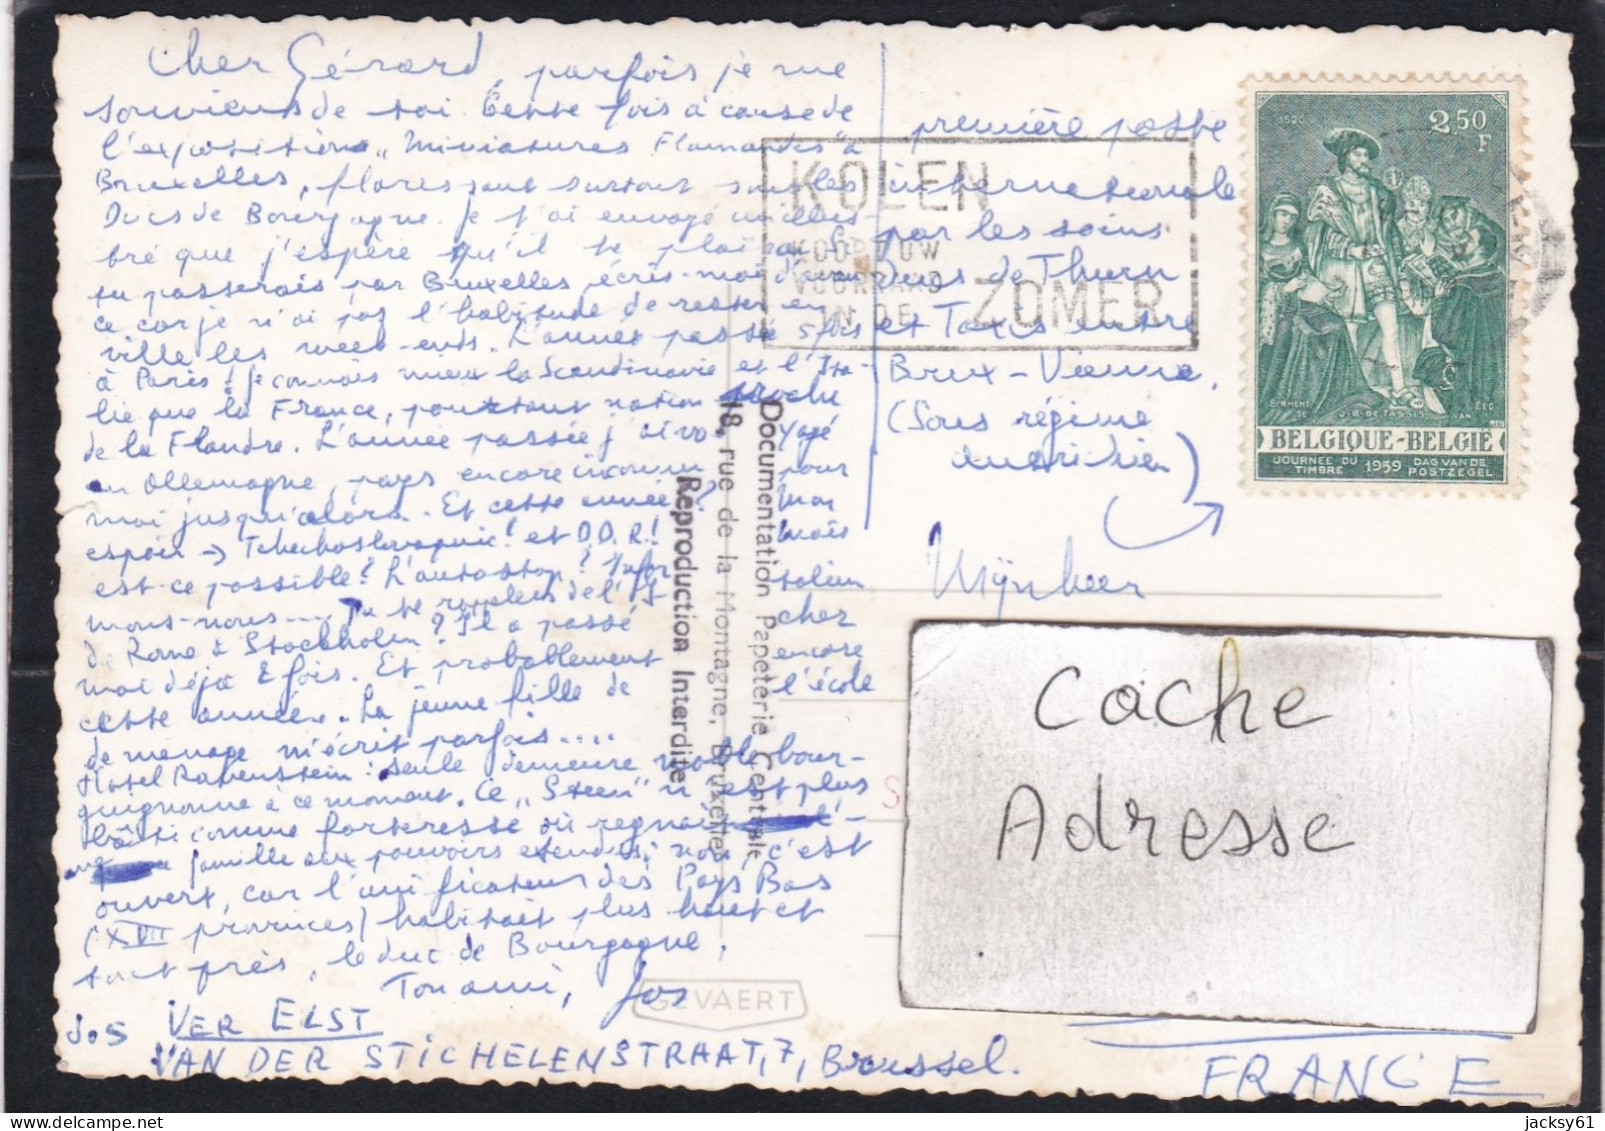 Cher Gérard, parfois je me
souviens de toi. Cette fois à cause de
l'exposition „Miniatures Flamandes" à
Bruxelles, florissant surtout sous les
Ducs de Bourgogne. Je t'ai envoyé un
bré que j'espère qu'il te plaira. Si
tu passerais par Bruxelles écris-moi d'avan
ce car je n'ai pas l'habitude de rester en
ville les week-ends. L'année passée 5 fois
à Paris! je connais mieux la Scandinavie et l'Ita-
lie que la France, pourtant nation proche
de la Flandre. L'année passée j'ai vo-
yagé
en Allemagne, pays encore inconnu
pour
moi jusqu'alors. Et cette année?
mon
espoir → Tchechoslovaquie! et D.D.R.!
mois
est-ce possible? L'autostop?
italien
mons-nous.... Tu te rappeles de l'
cher
de Rome à Stockholm? Il a passé
encore
moi déjà 2 fois. Et probablement
l'école
cette année. La jeune fille de
de menage m'écrit parfois....
Hotel Ravenstein: seule demeure noble bour-
guignonne à ce moment. Ce „Steen" n'est plus
bâti comme forteresse où regnait
une famille aux pouvoirs etendus, non, c'est
ouvert, car l'unificateur des Pays Bas
(XVII provinces) habitait plus haut et
tout près, le duc de Bourgogne,
Ton ami, Jos
Jos VER ELST
VAN DER STICHELENSTRAAT, 7, Brussel.
première poste
internationale
par les soins
de Thurn
et Taxis entre
Brux-Vienne,
(Sous régime
autrichien)
Mijnheer
Cache
Adresse
FRANCE
KOLEN
KOOPT UW
VOORRAAD
IN DE ZOMER
1520
2.50
F
SERMENT
DE J-B-DE TASSIS
VAN
EED
BELGIQUE-BELGIË
JOURNÉE DU
TIMBRE 1959 DAG VAN DE
POSTZEGEL
Documentation Papeterie Centrale
18, rue de la Montagne, Bruxelles
Reproduction Interdite
GEVAERT
jacksy61